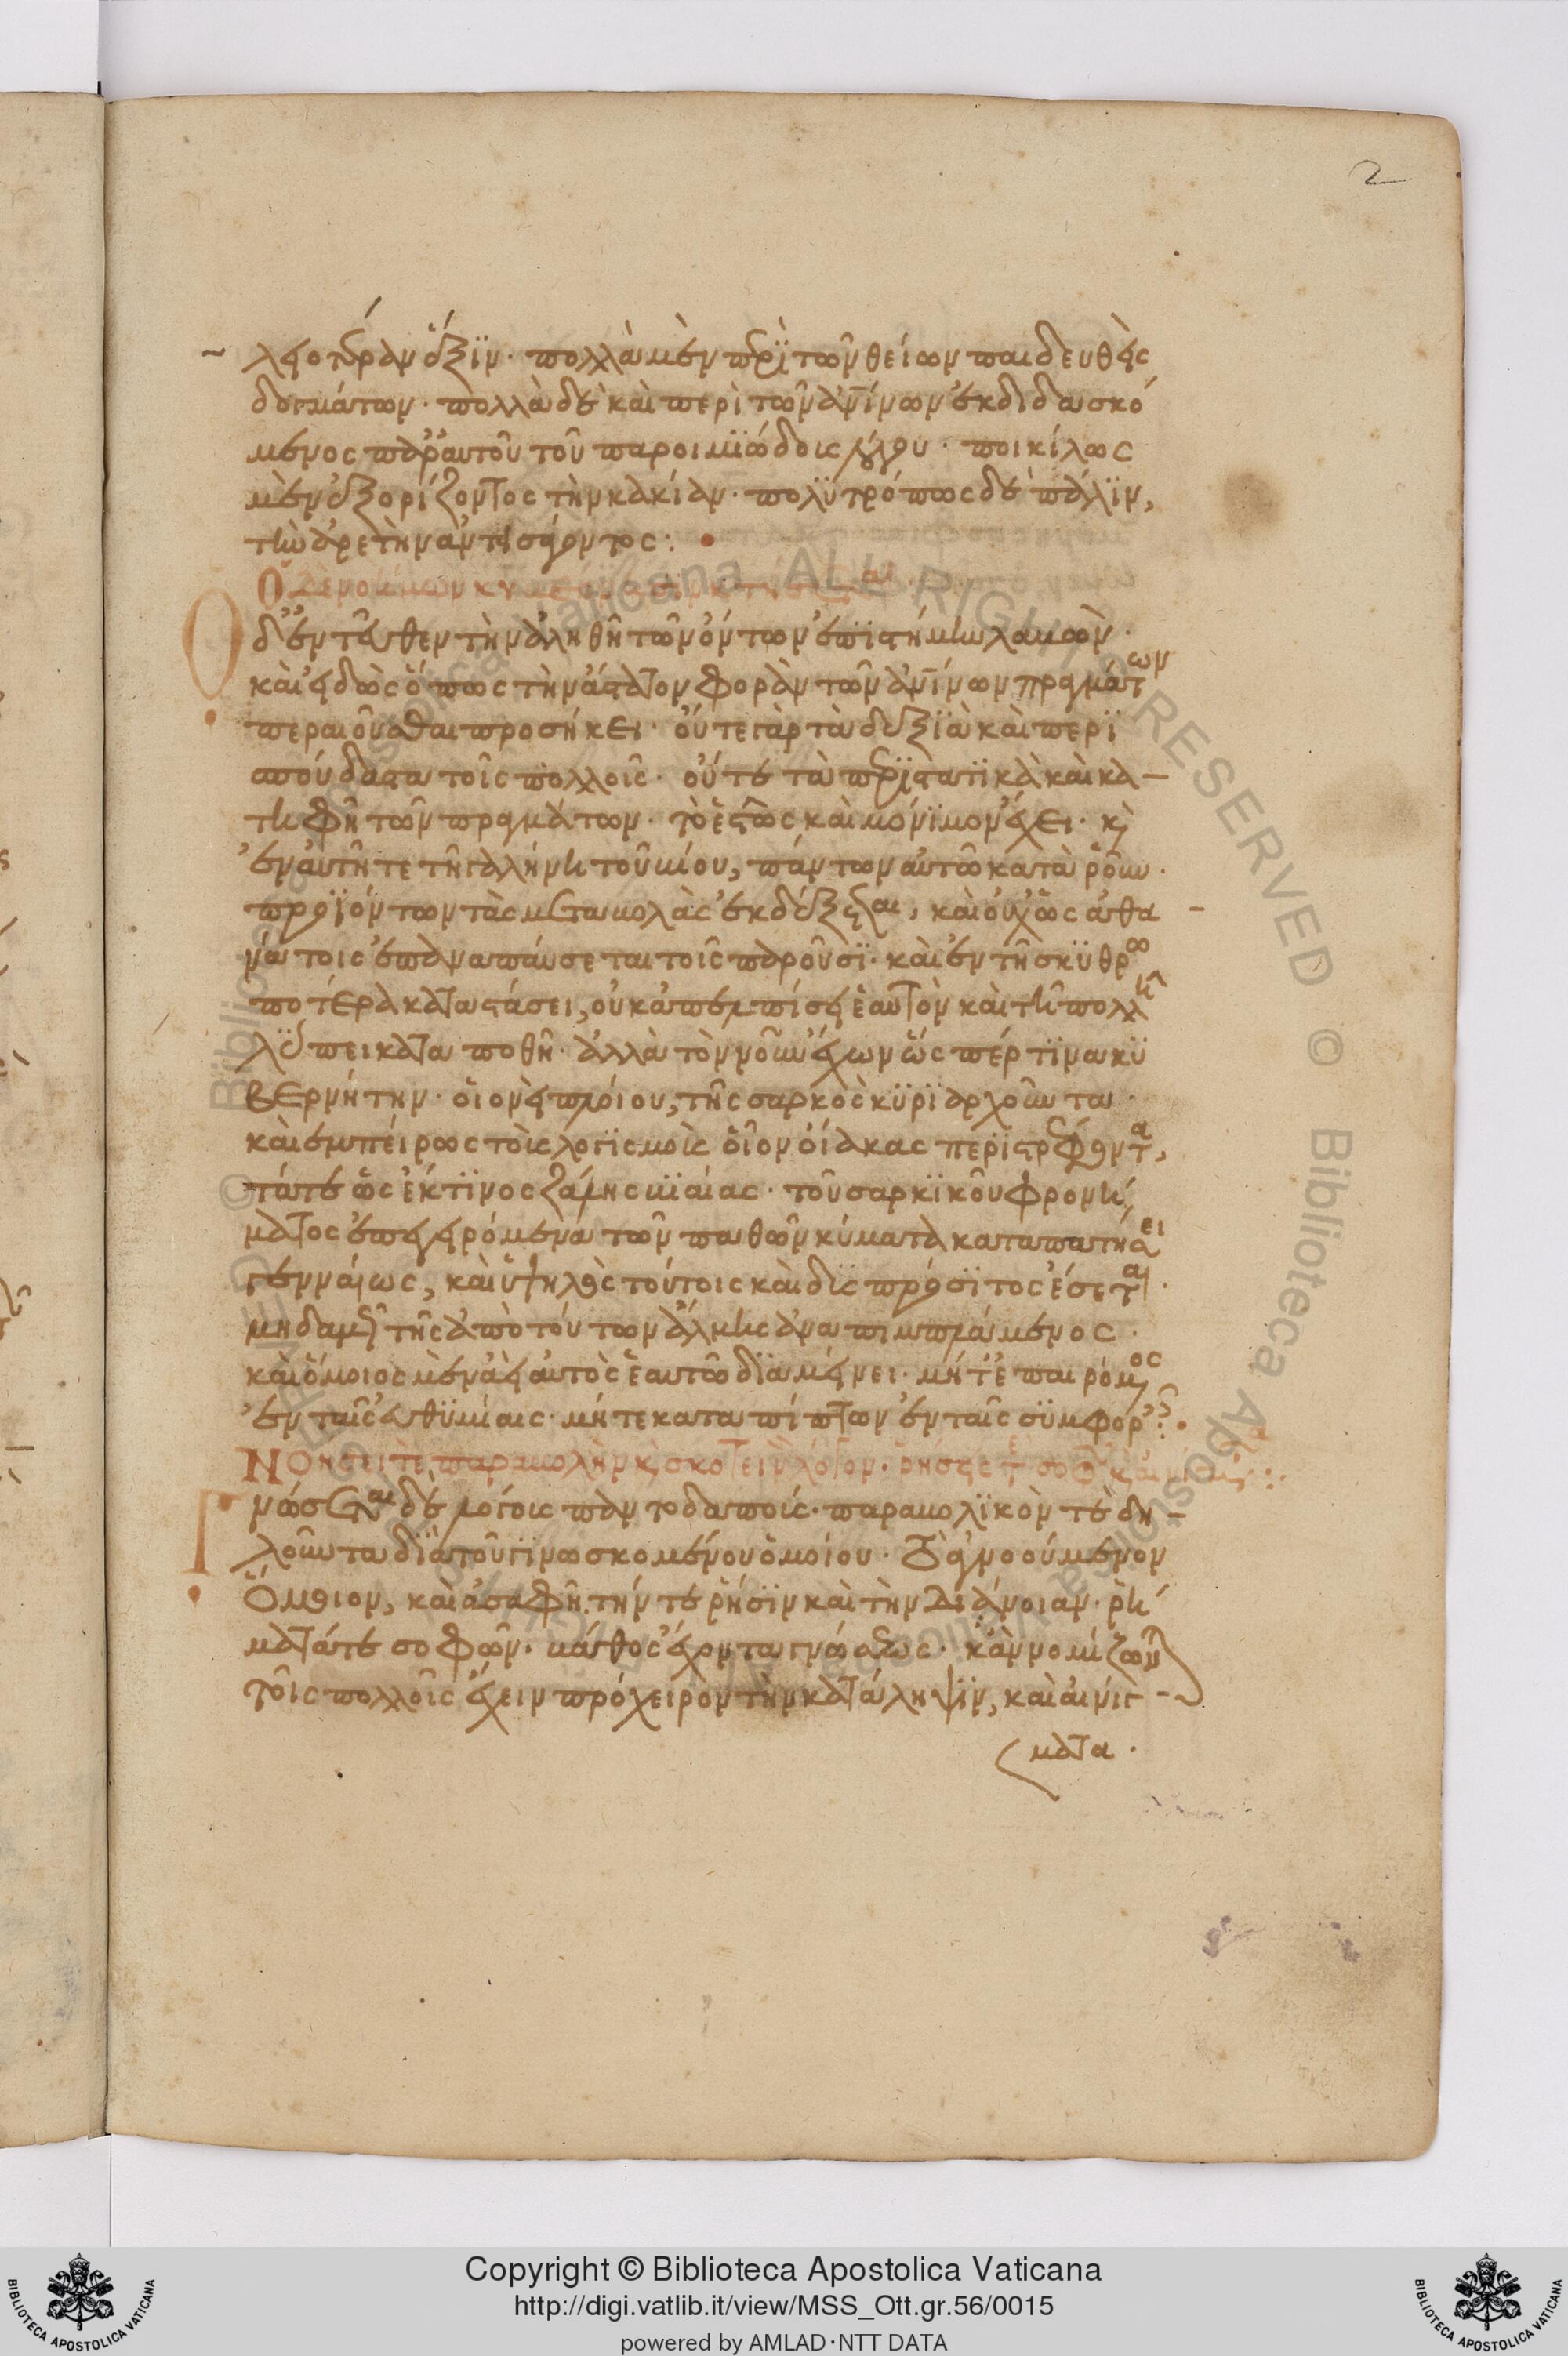 2
λειοτέραν ἕξϊν· πολλὰ μὲν περὶ τῶν θείων παιδευθεὶς
δογμάτων· πολλὰ δὲ καὶ περὶ τῶν ἀνΐνων ἐκδιδασκό
μενος παρ' αὐτοῦ τοῦ παροιμϊώδους λόγου· ποικίλως
μὲν ἐξορίζοντος τὴν κακίαν· πολϋτρόπως δὲ πάλϊν,
τὴν ἀρετὴν ἀντεισάγοντος:
Ὁ δὲ νοήμων κυβέρνησιν κτήσεται
Ὁ δ' ἐντεῦθεν τὴν ἀληθῆ τῶν ὄντων ἐπϊστήμην λαβὼν·
καὶ εἰδὼς ὅπως τὴν ἄστατον φορὰν τῶν ἀνΐνων πραγμάτων
περαιοῦσθαι προσήκει· οὔτε γὰρ τὰ δεξϊὰ καὶ περϊ
σπούδαστα τοῖς πολλοῖς· οὔτε τὰ περϊστατϊκὰ καὶ κα-
τηφῆ τῶν πραγμάτων· τὸ ἑστὼς καὶ μόνϊμον ἔχει· κὶ
ἐν αὐτῆ τε τῆ γαλήνη τοῦ βίου, πάντων αὐτῶ κατὰ ῥοῦν·
προϊόντων τὰς μεταβολὰς ἐκδέξεται, καὶ οὐχ ὡς ἀθα-
νάτοις ἐπαναπαύσεται τοῖς παροῦσϊ· καὶ ἐν τῆ σκϋθρω
ποτέρα καταστάσει, οὐκ ἀπελπίσει ἑαυτὸν καὶ τῆ πολλῆ
λϋπει καταποθῆ· ἀλλὰ τὸν νοῦν ἔχων ὥς πέρ τϊνα κϋ
βερνήτην· οἱονεὶ πλοίου, τῆς σαρκὸς κϋρϊαρχοῦντα·
καὶ ἐμπείρως τοῖς λογϊσμοῖς οἷον οἴακας περϊστρέφοντα,
τά τε ὡς ἔκ τϊνος ζάλης βϊαίας· τοῦ σαρκϊκοῦ φρονή
ματος ἐπεγειρόμενα τῶν παθῶν κύματα καταπατήσει
γενναίως, καὶ ὑψηλὸς τούτοις καὶ δϋς πρόσϊτος ἔσεται·
μηδαμῆ τῆς ἀπὸ τούτων ἅλμης ἀναπιμπλάμενος·
καὶ ὅμοιος μὲν ἀεὶ αὐτὸς ἑαυτῶ δϊαμένει· μήτε ἐπαιρόμενος
ἐν ταῖς εὐθϋμίαις· μήτε καταπίπτων ἐν ταῖς σϋμφοραῖς.
Νοήσει τε παραβολὴν κὶ σκοτεινὸν λόγον· ῥήσεις τε σοφῶν καὶ αἰνίγματα:
Γνώσεται δὲ λόγοις παντοδαποῖς· παραβολϊκὸν τὲ δη-
λοῦντα δϊὰ τοῦ γϊνωσκομένου ὁμοίου· τὸ ἀγνοούμενον
ὅμοιον, καὶ ἀσαφῆ τήν τε ῥῆσϊν καὶ τὴν διάνοιαν· ῥή
ματά τε σοφῶν· βάθος ἔχοντα γνώσεως· κἂν νομίζων
τοῖς πολλοῖς ἔχειν πρόχειρον τὴν κατάληψϊν, καὶ αἰνίγ-
ματα·
Copyright © Biblioteca Apostolica Vaticana
http://digi.vatlib.it/view/MSS_Ott.gr.56/0015
powered by AMLAD·NTT DATA